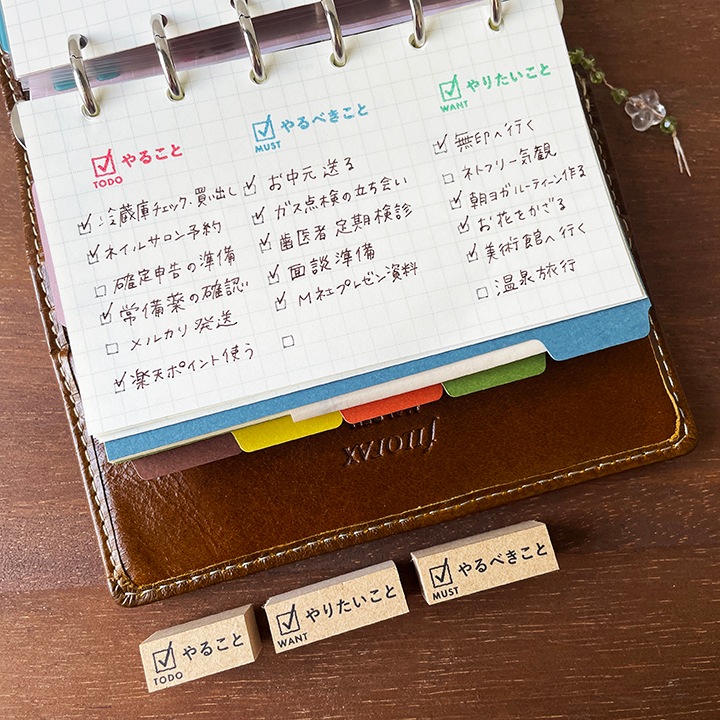 やること
TODO
冷蔵庫チェック・買い出し
ネイルサロン予約
確定申告の準備
常備薬の確認
メルカリ発送
楽天ポイント使う
やるべきこと
MUST
お中元送る
ガス点検の立ち会い
歯医者定期検診
面談準備
M社プレゼン資料
やりたいこと
WANT
無印へ行く
ネトフリ一気観
朝ヨガルーティーン作る
お花をかざる
美術館へ行く
温泉旅行
やること
TODO
やりたいこと
WANT
やるべきこと
MUST